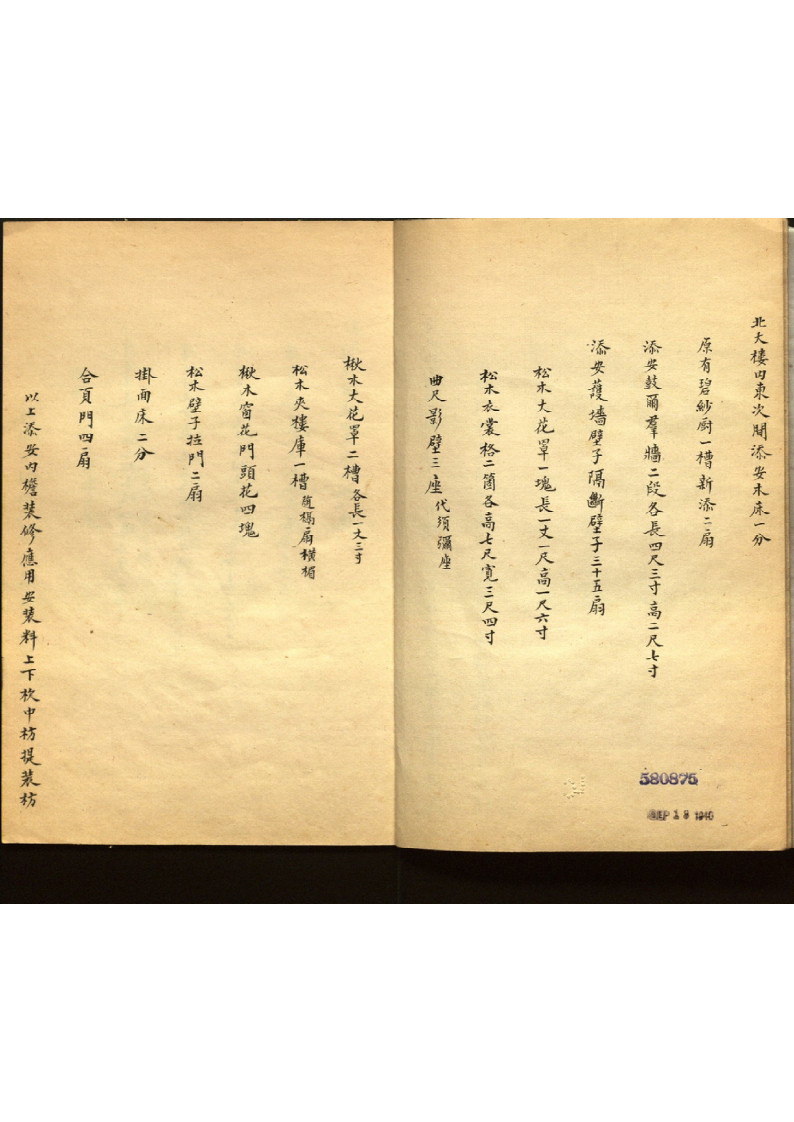 北大樓内東次間添安木床一分
原有碧紗厨一槽新添二扇
添安鼓爾羣牆二段各長四尺三寸高二尺七寸
添安護墻壁子隔斷壁子三十五扇
松木大花罩一塊長一丈一尺高一尺六寸
松木衣裳格二箇各高七尺寬三尺四寸
曲尺影壁三座代須彌座
580875
SEP 18 1940
楸木大花罩二槽各長一丈三寸
松木夾樓庫一槽随槅扇横楣
楸木窗花門頭花四塊
松木壁子拉門二扇
掛面床二分
合頁門四扇
以上添安内檐裝修應用安裝料上下枚中枋提裝枋